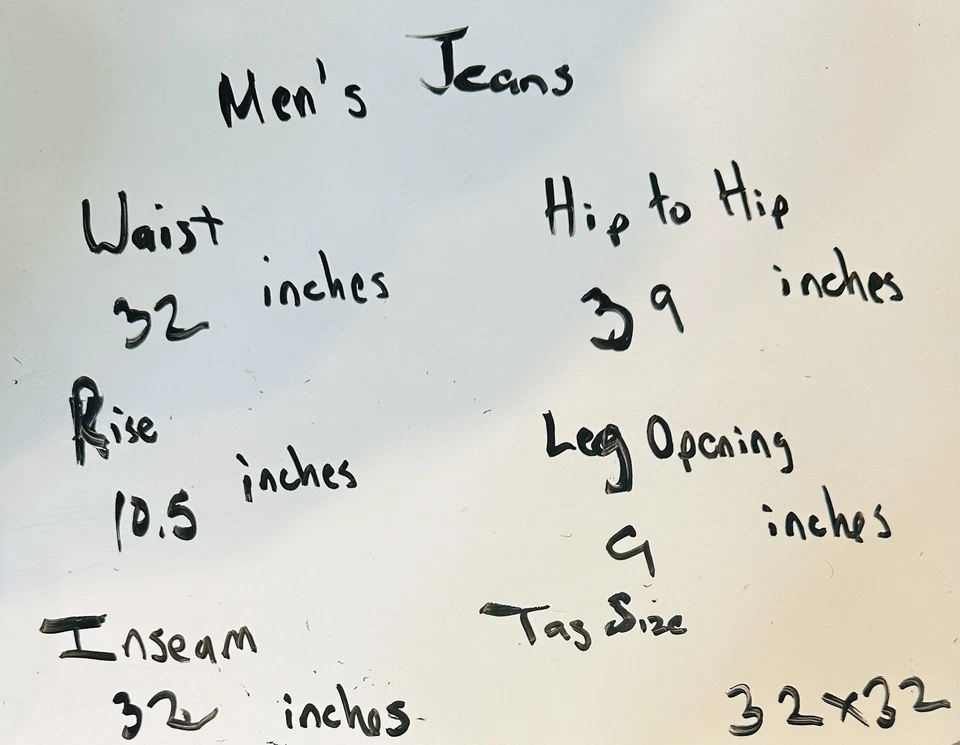 Men's Jeans
Waist
32 inches
Hip to Hip
39 inches
Rise
10.5 inches
Leg Opening
9 inches
Inseam
32 inches
Tag Size
32x32